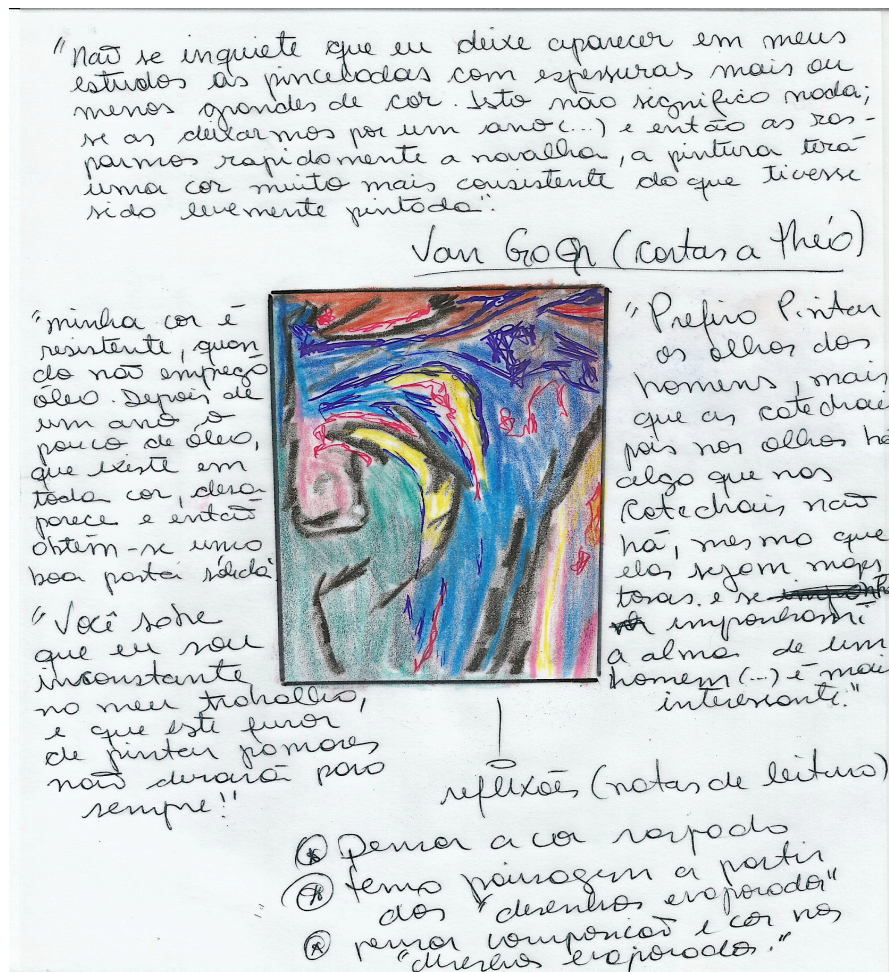 "Não se inquiete que eu deixe aparecer em meus
estudos as pinceladas com espessuras mais ou
menos grandes de cor. Isto não significa nada;
se as deixarmos por um ano (...) e então as ras-
parmos rapidamente a navalha, a pintura terá
uma cor muito mais consistente do que tivesse
sido levemente pintada".
Van Gogh (cartas a Théo)
"minha cor é
resistente, quan
do não emprego
óleo. Depois de
um ano o
pouco de óleo,
que existe em
toda cor, desa
parece e então
obtém-se uma
boa pasta sólida"
"Você sabe
que eu sou
inconstante
no meu trabalho,
e que este furor
de pintar pomares
não durará para
sempre!"
"Prefiro Pintar
os olhos dos
homens, mais
que as catedrais
pois nos olhos há
algo que nas
Catedrais não
há, mesmo que
elas sejam majes
tosas e se
imponham:
a alma de um
homem (...) é mais
interessante."
reflexões (notas de leitura)
pensar a cor raspada
tema paisagem a partir
dos "desenhos evaporados"
pensar composição e cor nos
"desenhos evaporados."